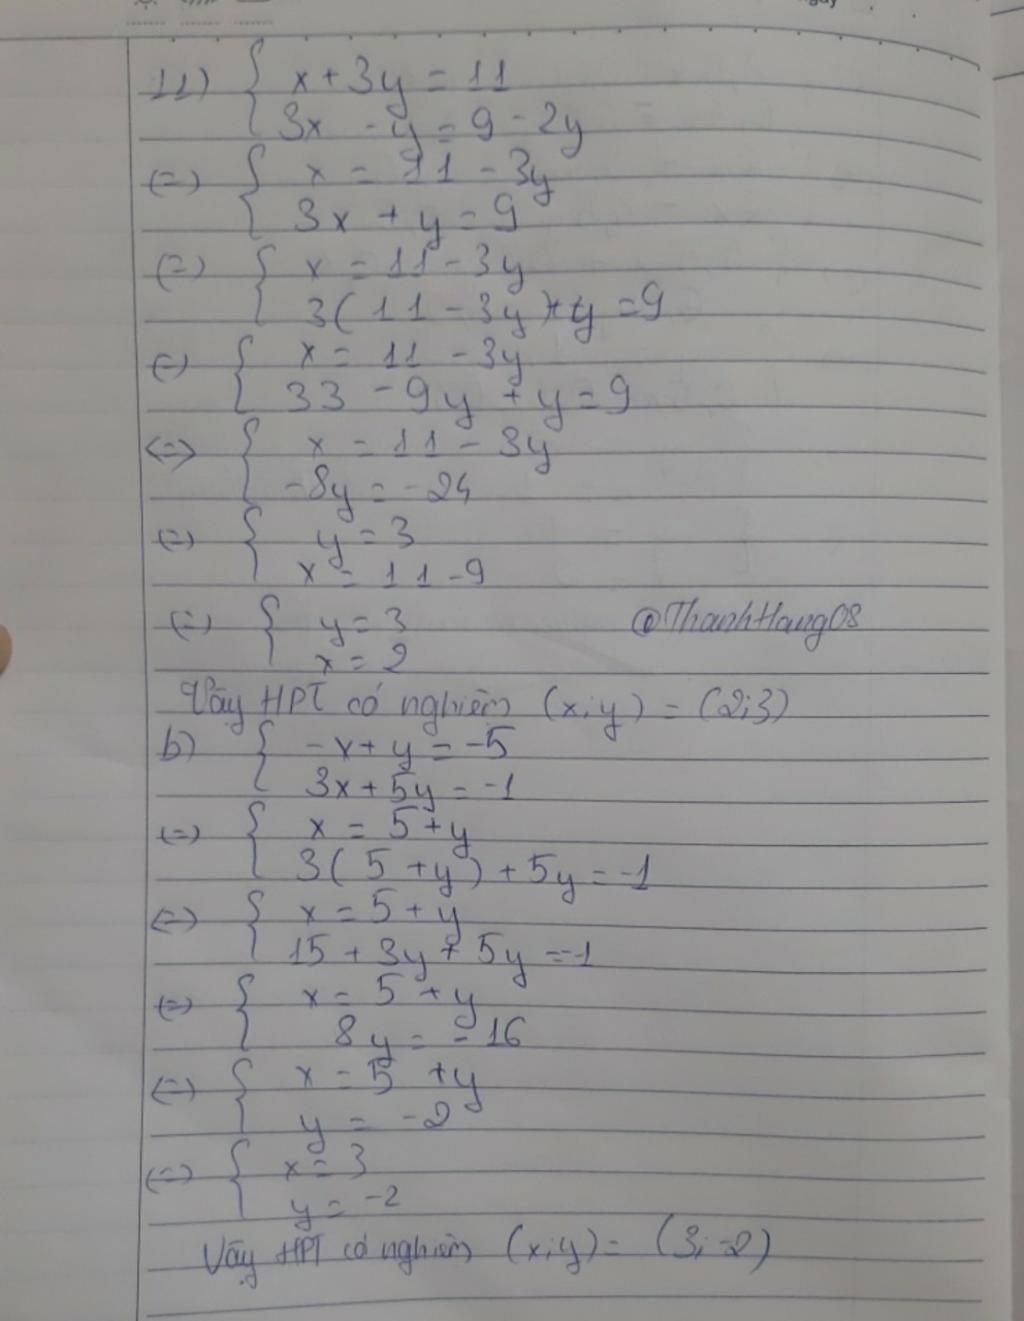 11) { x + 3y = 11
3x - y = 9 - 2y
(=) { x = 11 - 3y
3x + y = 9
(=) { x = 11 - 3y
3( 11 - 3y ) + y = 9
(=) { x = 11 - 3y
33 - 9y + y = 9
<=> { x = 11 - 3y
-8y = -24
(=) { y = 3
x = 11 - 9
(=) { y = 3 @ThanhHang08
x = 2
Vậy HPT có nghiệm (x;y) = (2;3)
b) { -x + y = -5
3x + 5y = -1
(=) { x = 5 + y
3( 5 + y ) + 5y = -1
(=) { x = 5 + y
15 + 3y + 5y = -1
(=) { x = 5 + y
8y = -16
(=) { x = 5 + y
y = -2
(=) { x = 3
y = -2
Vậy HPT có nghiệm (x;y) = (3;-2)